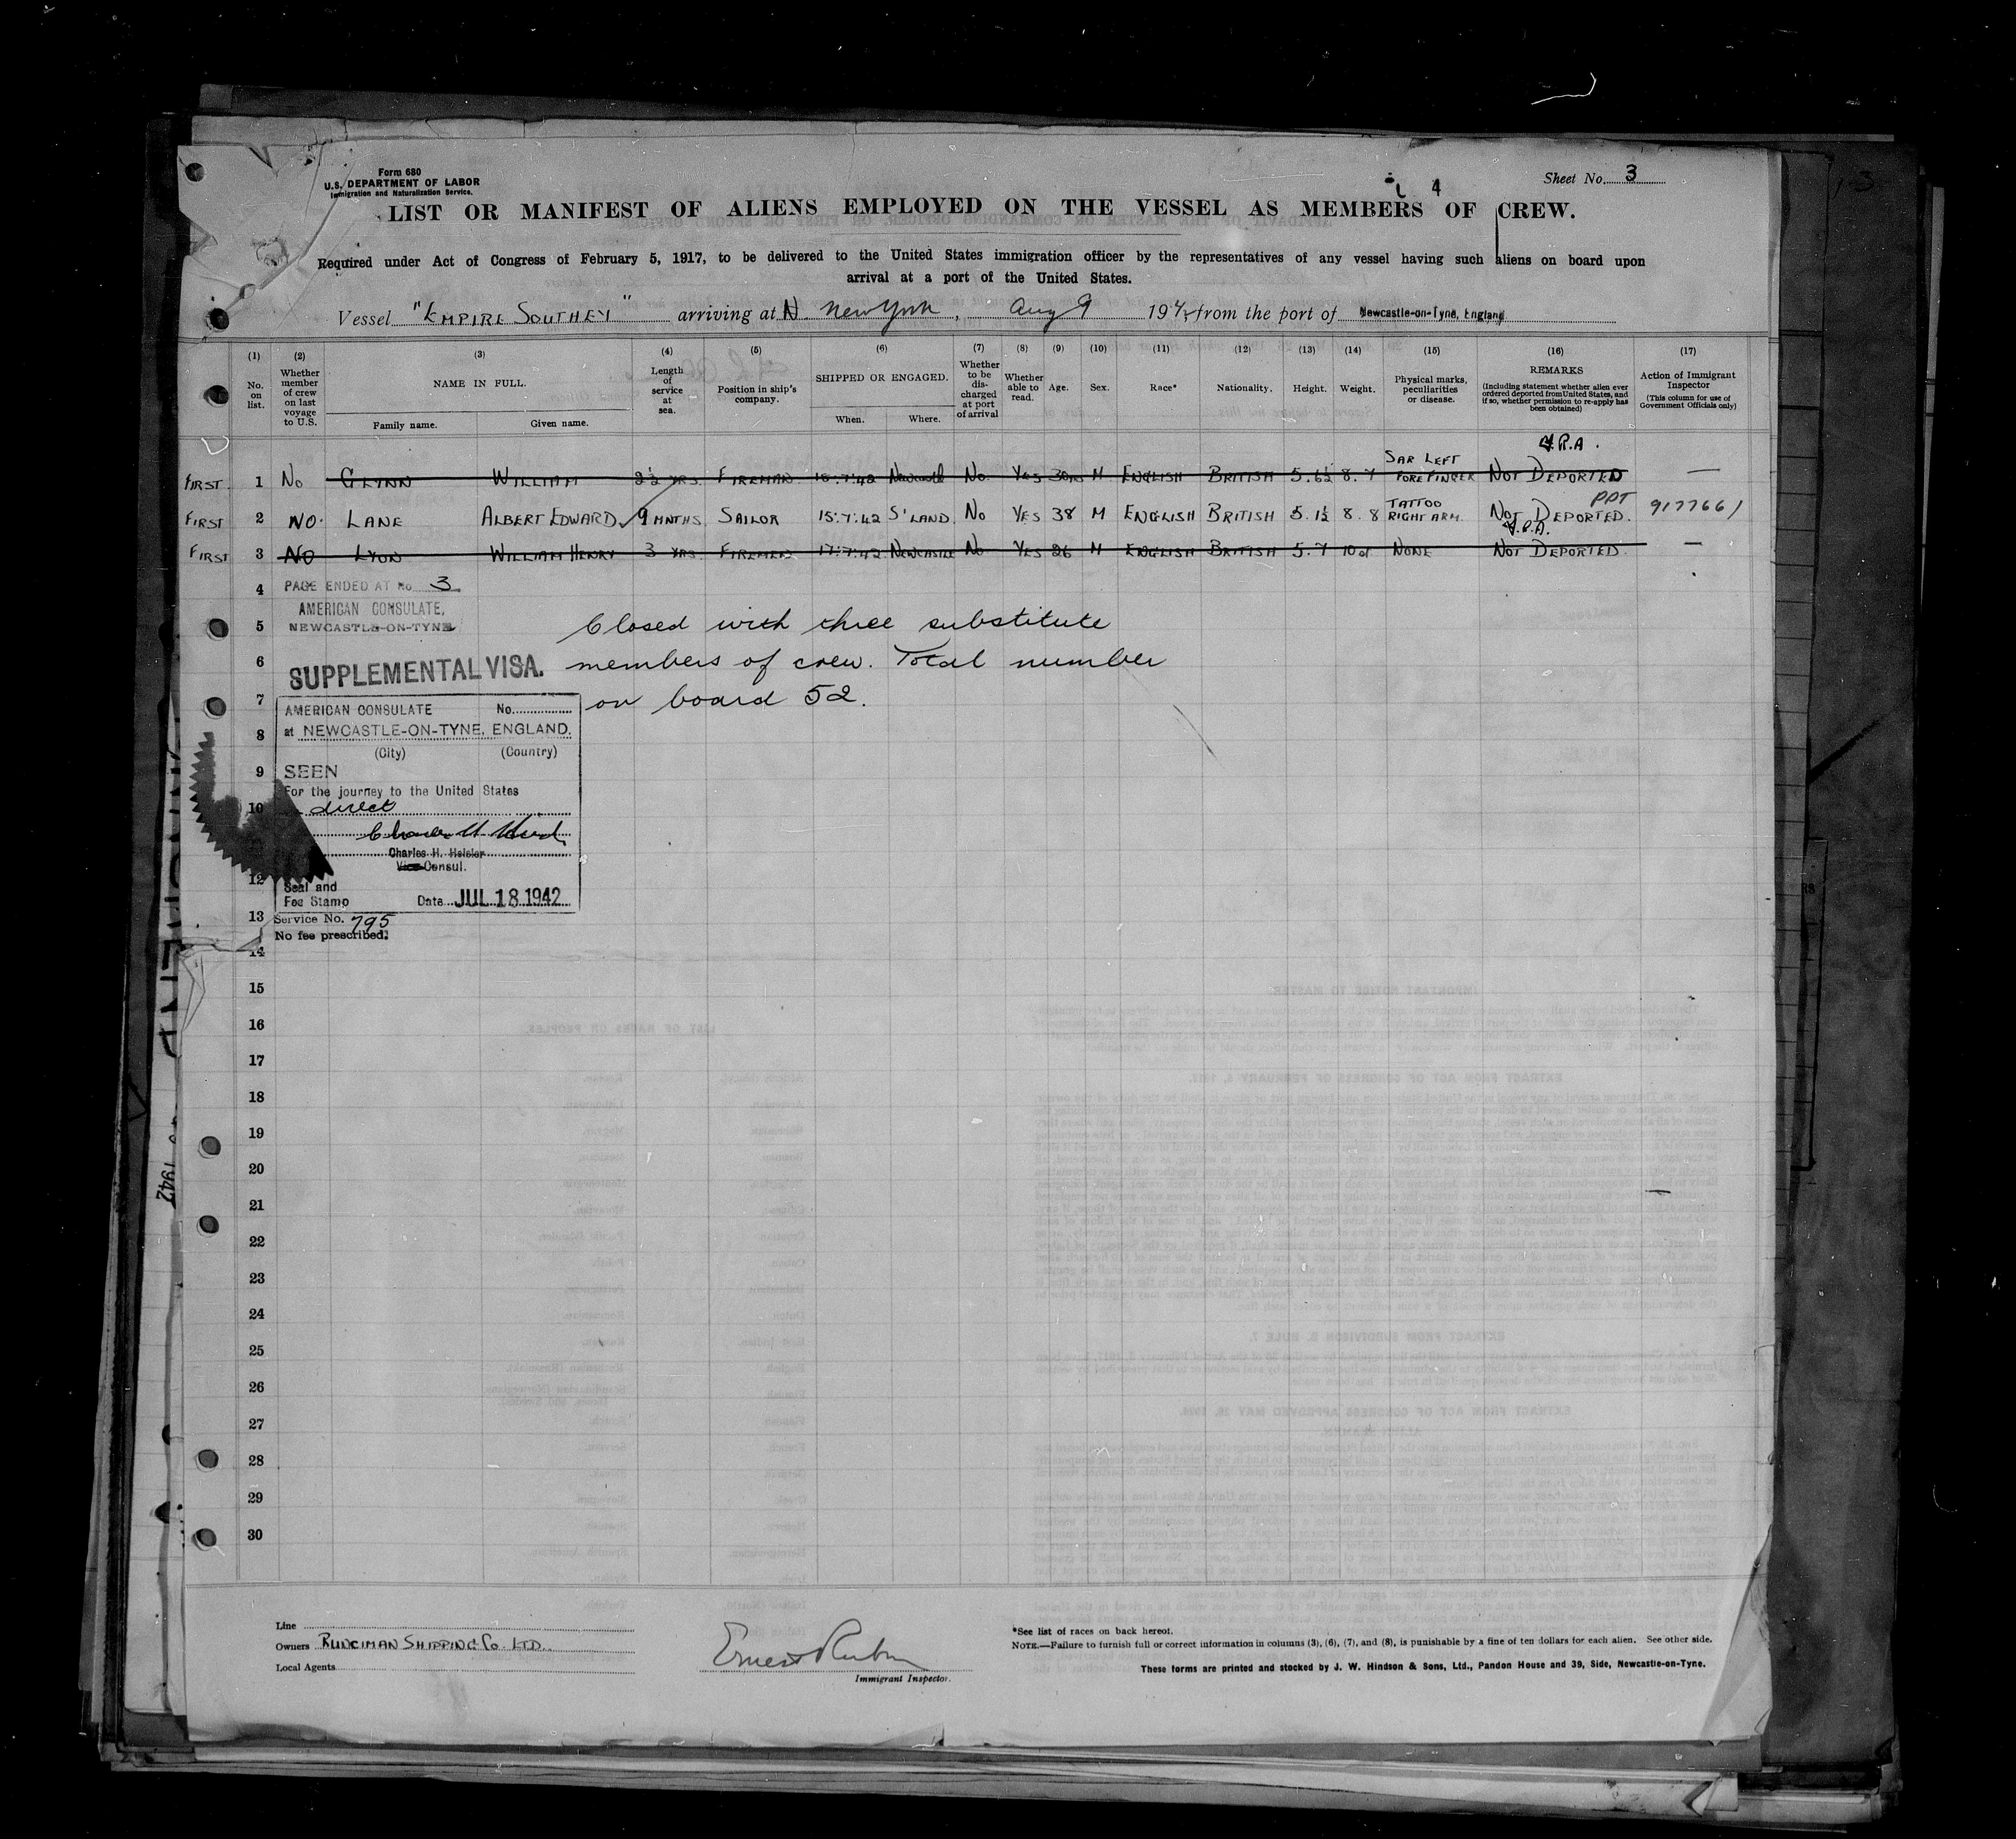 Form 680
U.S. DEPARTMENT OF LABOR
Immigration and Naturalization Service.
Sheet No. 3
4
LIST OR MANIFEST OF ALIENS EMPLOYED ON THE VESSEL AS MEMBERS OF CREW.
Required under Act of Congress of February 5, 1917, to be delivered to the United States immigration officer by the representatives of any vessel having such aliens on board upon
arrival at a port of the United States.
Vessel "EMPIRE SOUTHEY" arriving at New York, Aug 9 1942 from the port of Newcastle-on-Tyne, England
(1) No. on list.
(2) Whether member of crew on last voyage to U.S.
(3) NAME IN FULL. Family name. Given name.
(4) Length of service at sea.
(5) Position in ship's company.
(6) SHIPPED OR ENGAGED. When. Where.
(7) Whether to be discharged at port of arrival
(8) Whether able to read.
(9) Age.
(10) Sex.
(11) Race*
(12) Nationality.
(13) Height.
(14) Weight.
(15) Physical marks, peculiarities or disease.
(16) REMARKS (Including statement whether alien ever ordered deported from United States, and if so, whether permission to re-apply has been obtained)
(17) Action of Immigrant Inspector (This column for use of Government Officials only)
FIRST. 1 No GLYNN WILLIAM 2½ YRS FIREMAN 15:7:42 Newcastle No. YES 30 M ENGLISH BRITISH 5.6½ 8.7 SAR LEFT FOREFINGER NOT DEPORTED —
FIRST 2 NO. LANE ALBERT EDWARD 9 MNTHS SAILOR 15:7:42 S'LAND. No YES 38 M ENGLISH BRITISH 5.1½ 8.8 TATTOO RIGHT ARM. NOT DEPORTED. PPT 9177661
FIRST 3 NO LYON WILLIAM HENRY 3 YRS. FIREMEN 17:7:42 NEWCASTLE No YES 26 M ENGLISH BRITISH 5.7 10 NONE NOT DEPORTED. —
4 PAGE ENDED AT No. 3
AMERICAN CONSULATE,
5 NEWCASTLE-ON-TYNE
Closed with three substitute
6 SUPPLEMENTAL VISA. members of crew. Total number
7 on board 52.
AMERICAN CONSULATE No.
8 at NEWCASTLE-ON-TYNE, ENGLAND.
(City) (Country)
9 SEEN
For the journey to the United States
10 direct
Charles H. Heisler
Vice Consul.
12 Seal and
Fee Stamp Date JUL 18 1942
13 Service No. 795
No fee prescribed.
14
15
16
17
18
19
20
21
22
23
24
25
26
27
28
29
30
Line
Owners RUNCIMAN SHIPPING Co. LTD.
Local Agents
Ernest Rubin
Immigrant Inspector.
*See list of races on back hereof.
NOTE.—Failure to furnish full or correct information in columns (3), (6), (7), and (8), is punishable by a fine of ten dollars for each alien. See other side.
These forms are printed and stocked by J. W. Hindson & Sons, Ltd., Pandon House and 39, Side, Newcastle-on-Tyne.
1942